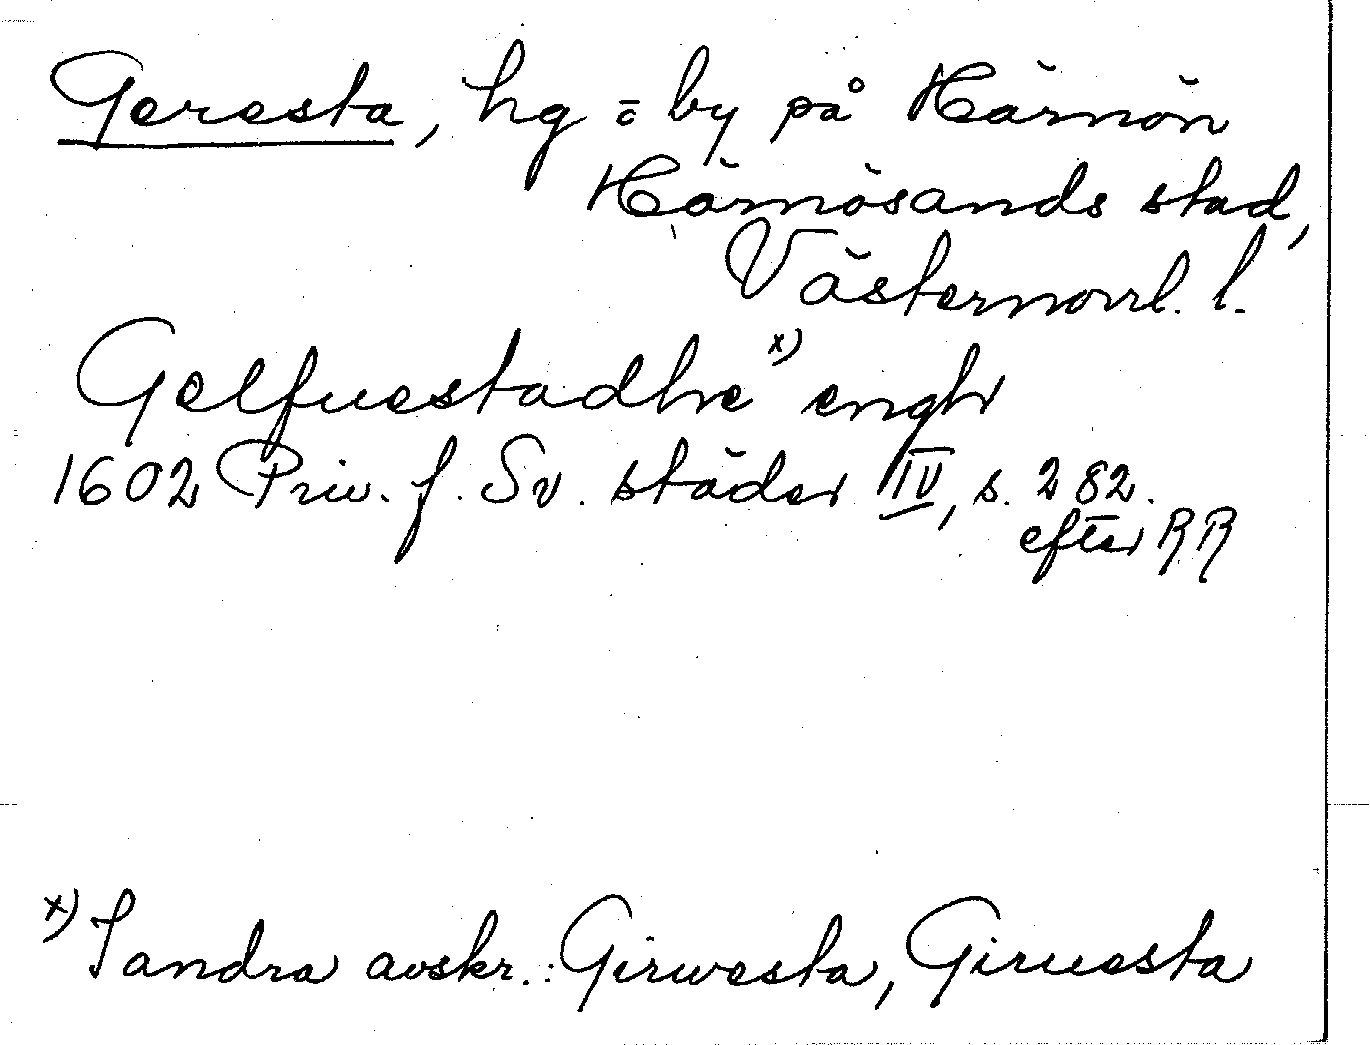 Geresta, hg = by på Härnön
Härnösands stad,
Västernorrl. l.
Gelfuestadhe x) engh
1602 Priv. f. Sv. städer IV, s. 282.
efter RR
x) I andra avskr.: Girwesta, Giruesta